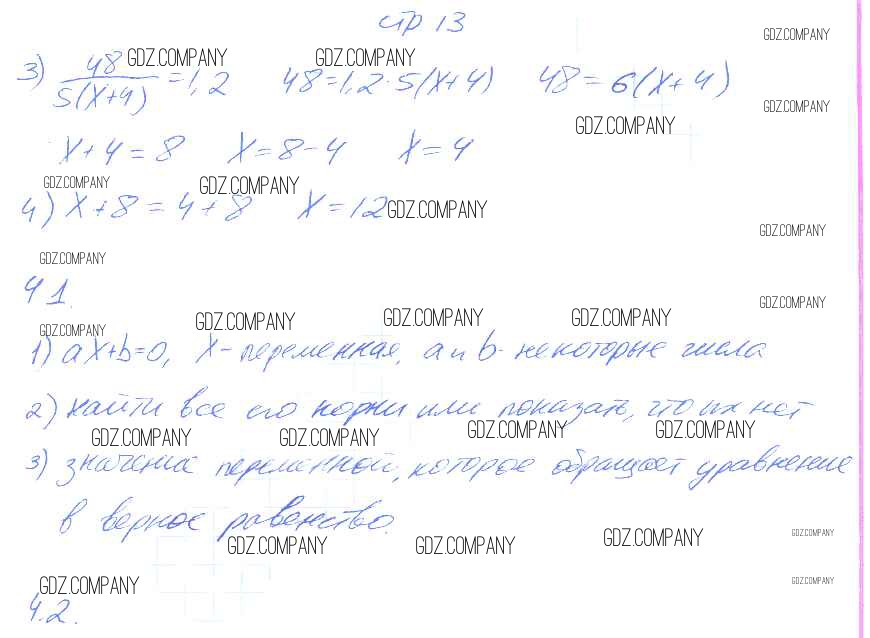 стр 13
GDZ.COMPANY
GDZ.COMPANY GDZ.COMPANY
3) 48/5(x+4) =1,2 48=1,2·5(x+4) 48=6(x+4)
GDZ.COMPANY
GDZ.COMPANY
x+4=8 x=8-4 x=4
GDZ.COMPANY GDZ.COMPANY
4) x+8=4+8 x=12 GDZ.COMPANY
GDZ.COMPANY
GDZ.COMPANY
41.
GDZ.COMPANY
GDZ.COMPANY GDZ.COMPANY GDZ.COMPANY GDZ.COMPANY
1) ax+b=0, x-переменная, a и b-некоторые числа
2) найти все его корни или показать, что их нет
GDZ.COMPANY GDZ.COMPANY GDZ.COMPANY GDZ.COMPANY
3) значение переменной, которое обращает уравнение
в верное равенство.
GDZ.COMPANY GDZ.COMPANY GDZ.COMPANY GDZ.COMPANY
GDZ.COMPANY GDZ.COMPANY
4.2.